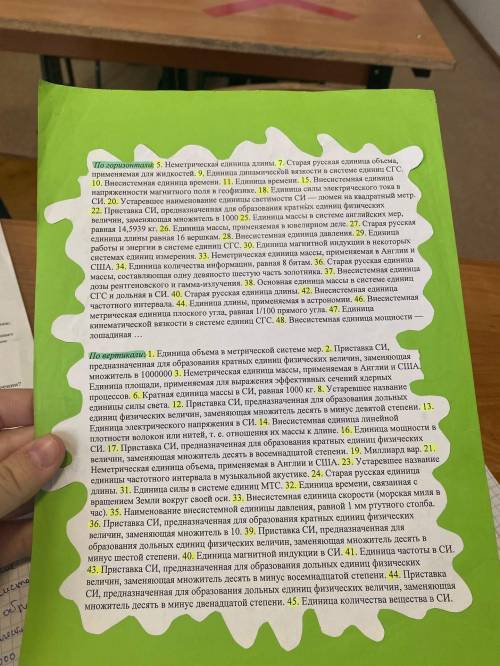 По горизонтали: 5. Неметрическая единица длины. 7. Старая русская единица объема,
применяемая для жидкостей. 9. Единица динамической вязкости в системе единиц СГС.
10. Внесистемная единица времени. 11. Единица времени. 15. Внесистемная единица
напряженности магнитного поля в геофизике. 18. Единица силы электрического тока в
СИ. 20. Устаревшее наименование единицы светимости СИ — люмен на квадратный метр.
22. Приставка СИ, предназначенная для образования кратных единиц физических
величин, заменяющая множитель в 1000 25. Единица массы в системе английских мер,
равная 14,5939 кг. 26. Единица массы, применяемая в ювелирном деле. 27. Старая русская
единица длины равная 16 вершкам. 28. Внесистемная единица давления. 29. Единица
работы и энергии в системе единиц СГС. 30. Единица магнитной индукции в некоторых
системах единиц измерения. 33. Неметрическая единица массы, применяемая в Англии и
США. 34. Единица количества информации, равная 8 битам. 36. Старая русская единица
массы, составляющая одну девяносто шестую часть золотника. 37. Внесистемная единица
дозы рентгеновского и гамма-излучения. 38. Основная единица массы в системе единиц
СГС и дольная в СИ. 40. Старая русская единица длины. 42. Внесистемная единица
частотного интервала. 44. Единица длины, применяемая в астрономии. 46. Внесистемная
метрическая единица плоского угла, равная 1/100 прямого угла. 47. Единица
кинематической вязкости в системе единиц СГС. 48. Внесистемная единица мощности —
лошадиная ...
По вертикали: 1. Единица объема в метрической системе мер. 2. Приставка СИ,
предназначенная для образования кратных единиц физических величин, заменяющая
множитель в 1000000 3. Неметрическая единица массы, применяемая в Англии и США.
Единица площади, применяемая для выражения эффективных сечений ядерных
процессов. 6. Кратная единица массы в СИ, равная 1000 кг. 8. Устаревшее название
единицы силы света. 12. Приставка СИ, предназначенная для образования дольных
единиц физических величин, заменяющая множитель десять в минус девятой степени. 13.
Единица электрического напряжения в СИ. 14. Внесистемная единица линейной
плотности волокон или нитей, т. е. отношения их массы к длине. 16. Единица мощности в
СИ. 17. Приставка СИ, предназначенная для образования кратных единиц физических
величин, заменяющая множитель десять в восемнадцатой степени. 19. Миллиард вар. 21.
Неметрическая единица объема, применяемая в Англии и США. 23. Устаревшее название
единицы частотного интервала в музыкальной акустике. 24. Старая русская единица
длины. 31. Единица силы в системе единиц МТС. 32. Единица времени, связанная с
вращением Земли вокруг своей оси. 33. Внесистемная единица скорости (морская миля в
час). 35. Наименование внесистемной единицы давления, равной 1 мм ртутного столба.
36. Приставка СИ, предназначенная для образования кратных единиц физических
величин, заменяющая множитель в 10. 39. Приставка СИ, предназначенная для
образования дольных единиц физических величин, заменяющая множитель десять в
минус шестой степени. 40. Единица магнитной индукции в СИ. 41. Единица частоты в СИ.
43. Приставка СИ, предназначенная для образования дольных единиц физических
величин, заменяющая множитель десять в минус восемнадцатой степени. 44. Приставка
СИ, предназначенная для образования дольных единиц физических величин, заменяющая
множитель десять в минус двенадцатой степени. 45. Единица количества вещества в СИ.